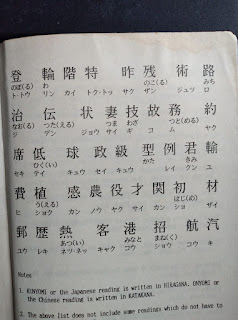 登 輪 階 特 昨 残 術 路
のぼ(る) わ のこ(る) みち
ト・トウ リン カイ トク・トッ サク ザン ジュツ ロ
治 伝 状 妻 技 故 務 約
なお(る) つた(える) つま わざ つと(める)
ジ デン ジョウ サイ ギ コ ム ヤク
席 低 球 政 級 型 例 君 輸
ひく(い) かた きみ
セキ テイ キュウ セイ キュウ レイ クン ユ
費 植 感 農 役 才 関 初 材
う(える) はじ(め)
ヒ ショク カン ノウ ヤク サイ カン ショ ザイ
郵 歴 熱 客 港 招 航 汽
あつ(い) みなと まね(く)
ユウ レキ ネツ・ネッ キャク コウ ショウ コウ キ
Notes
1. KUNYOMI or the Japanese reading is written in HIRAGANA. ONYOMI or
the Chinese reading is written in KATAKANA.
2. The above list does not include some readings which do not have to